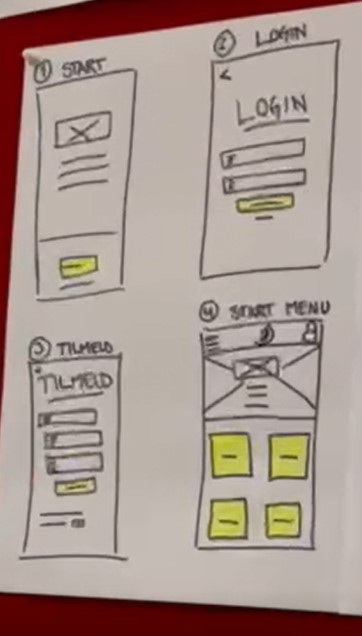 1 START
2 LOGIN
<
LOGIN
3 TILMELD
TILMELD
4 START MENU